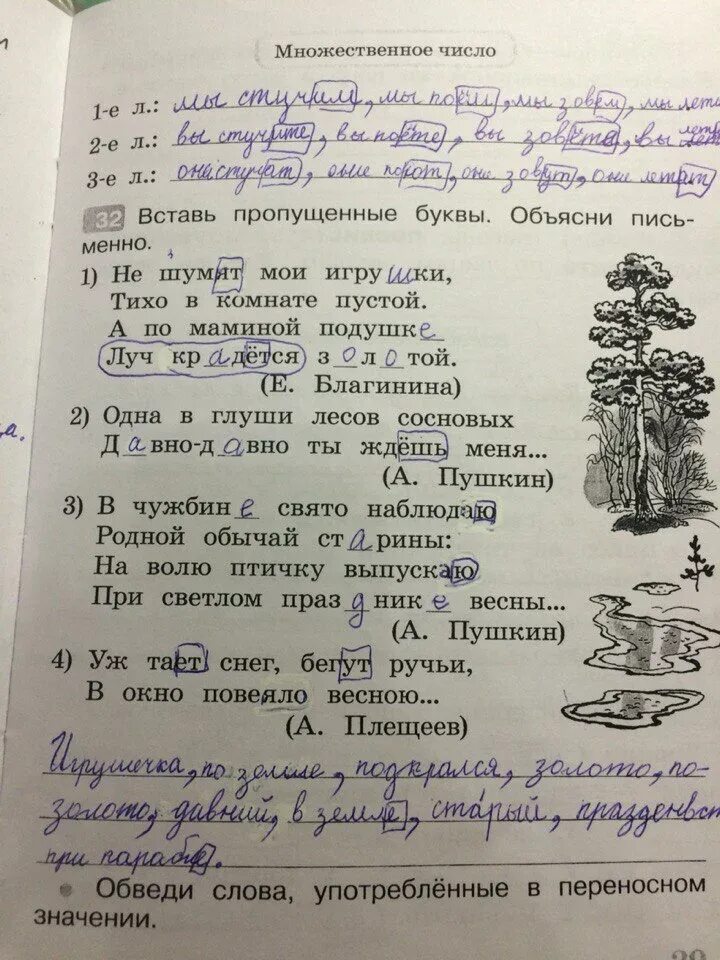 Множественное число
1-е л.: мы стучим, мы поём, мы зовём, мы лети
2-е л.: вы стучите, вы поёте, вы зовёте, вы лет
3-е л.: они стучат, они поют, они зовут, они летят
32 Вставь пропущенные буквы. Объясни пись-
менно.
1) Не шумят мои игрушки,
Тихо в комнате пустой.
А по маминой подушке
Луч крадётся золотой.
(Е. Благинина)
2) Одна в глуши лесов сосновых
Давно-давно ты ждёшь меня...
(А. Пушкин)
3) В чужбине свято наблюдаю
Родной обычай старины:
На волю птичку выпускаю
При светлом празднике весны...
(А. Пушкин)
4) Уж тает снег, бегут ручьи,
В окно повеяло весною...
(А. Плещеев)
Игрушечка, по земле, подкрался, золото, по-
золото, давний, в земле, старый, празденвст
при
Обведи слова, употреблённые в переносном
значении.